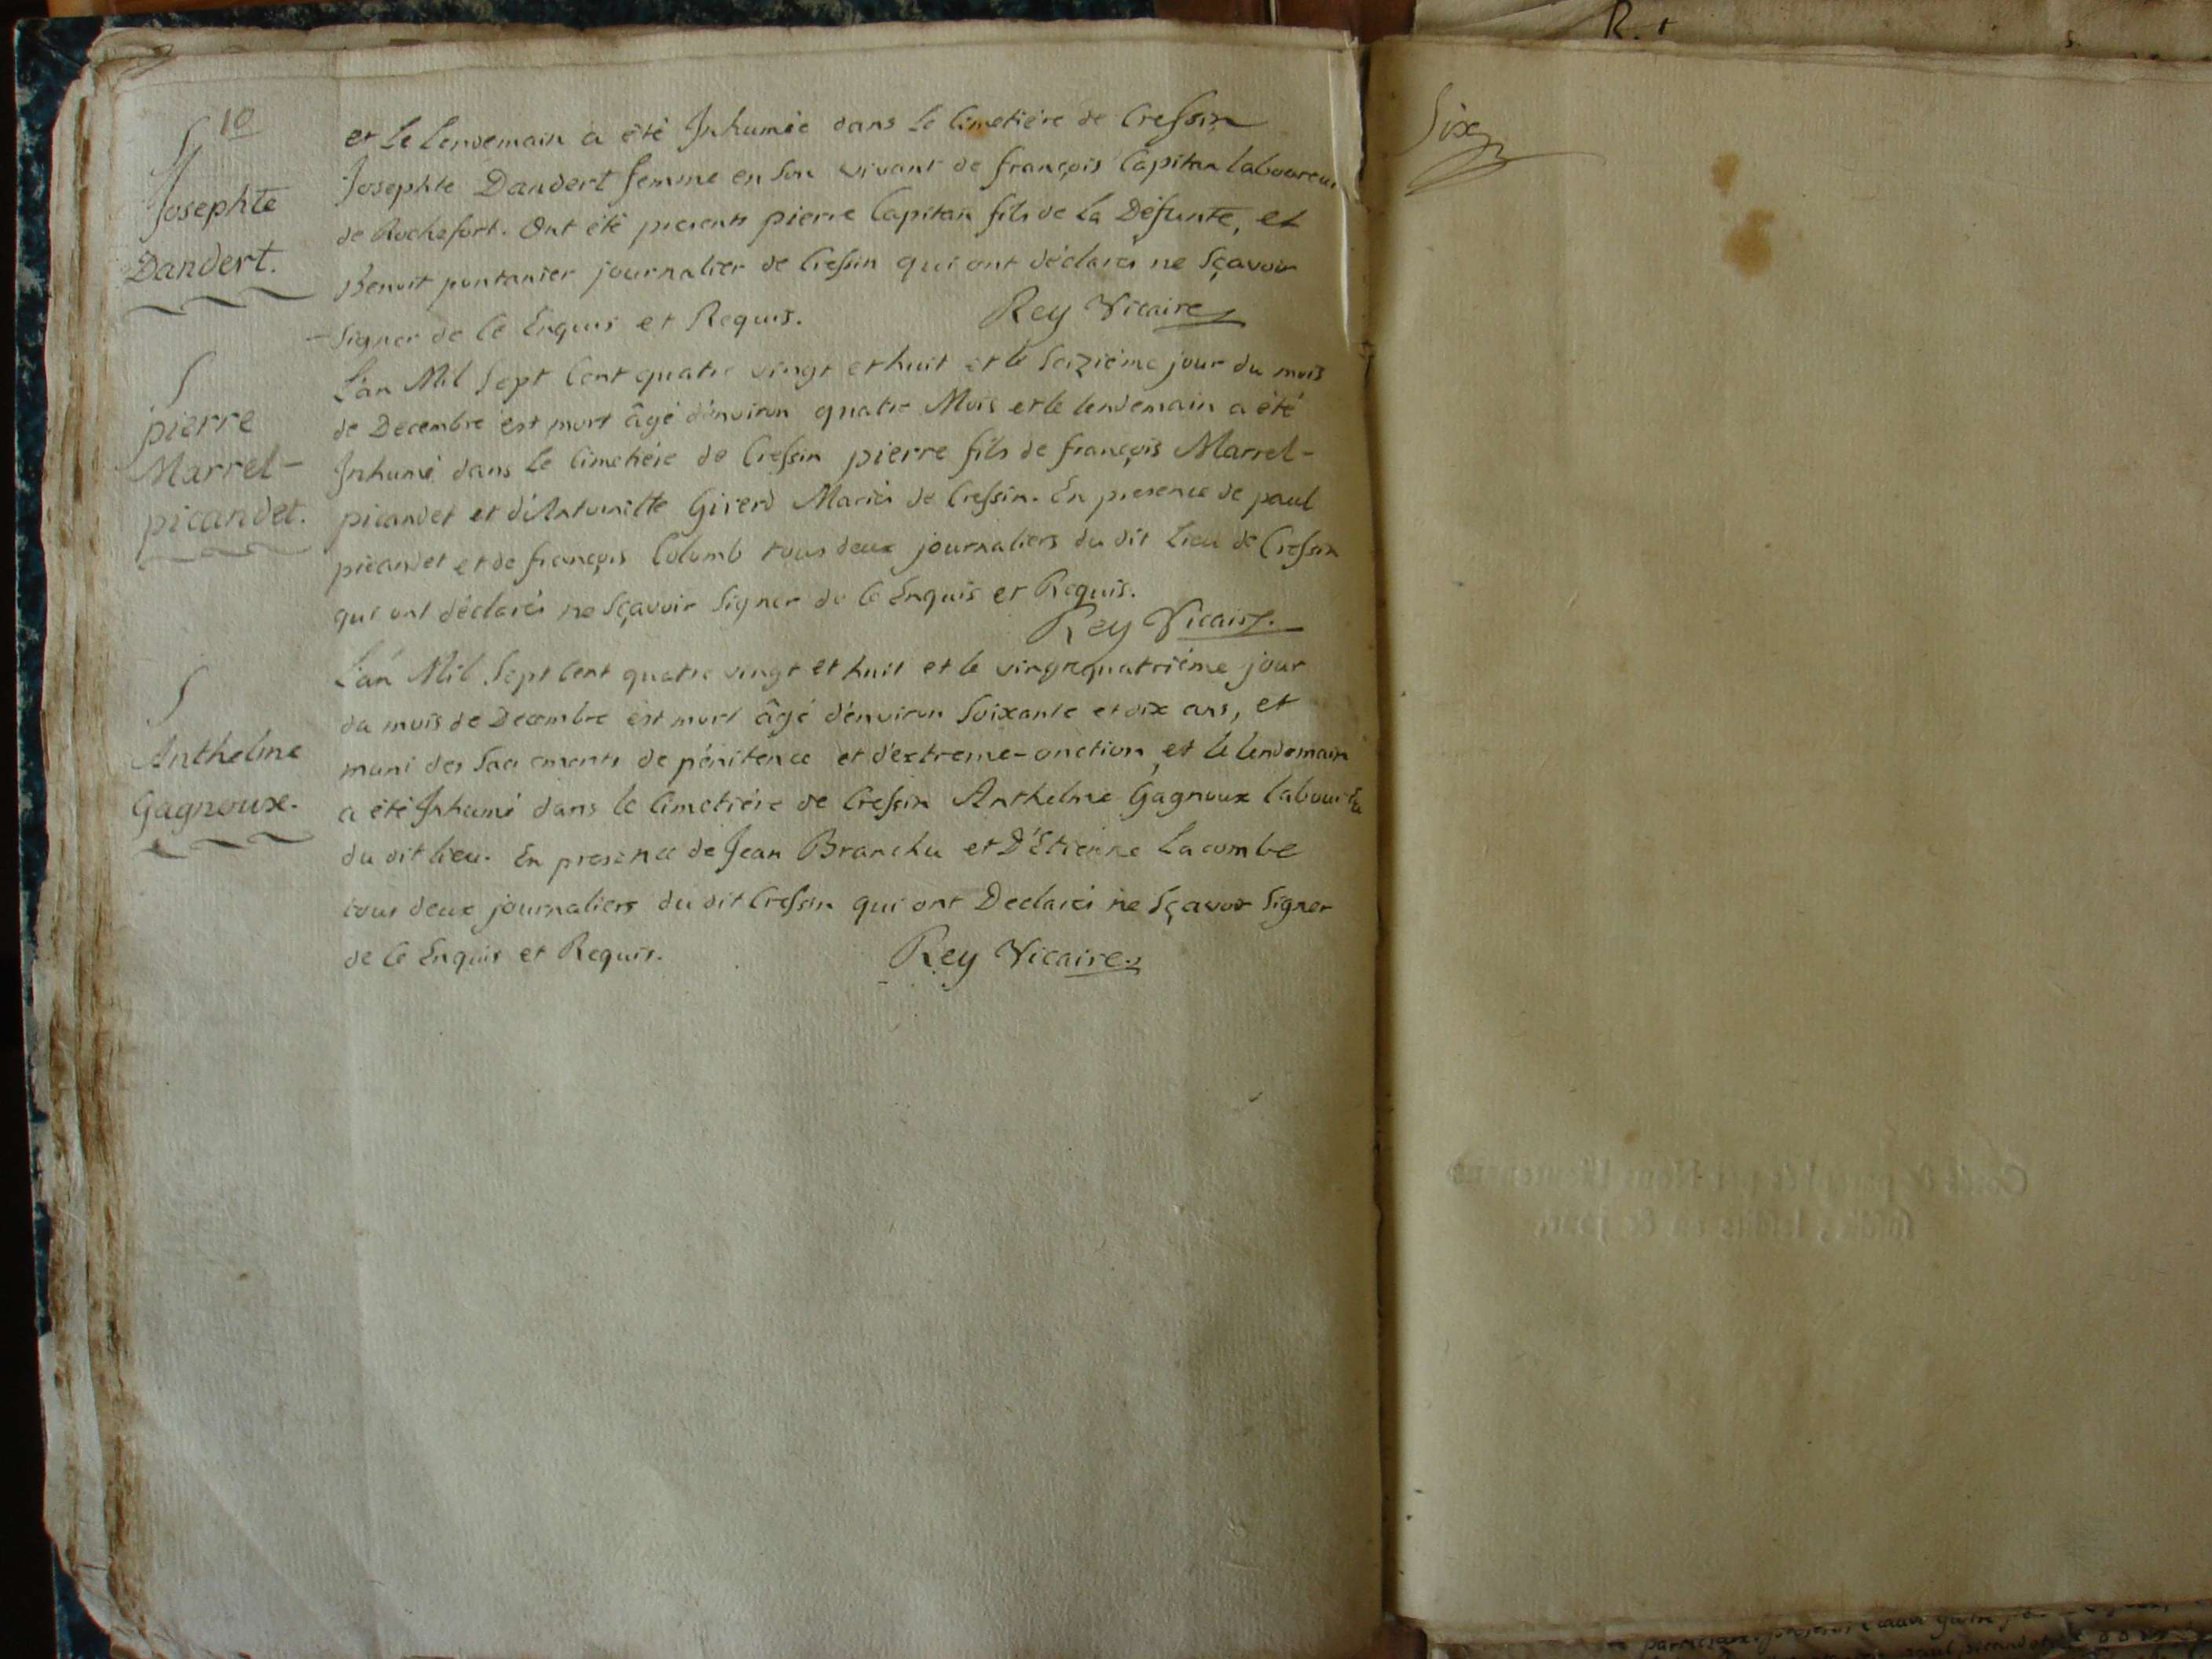 10
S
Josephte
Dandert.
et le lendemain a été Inhumée dans le Cimetière de Cressin
Josephte Dandert femme en son vivant de françois Capitan laboureur
de Rochefort. Ont été présents pierre Capitan fils de la Défunte, et
Benoit pontanier journalier de Cressin qui ont déclarés ne sçavoir
signer de ce Enquis et Requis.
Rey Vicaire
S
pierre
Marrel-
picandet.
L'an Mil Sept Cent quatre vingt et huit et le Seizième jour du mois
de Decembre est mort âgé d'environ quatre Mois et le lendemain a été
Inhumé dans le Cimetière de Cressin pierre fils de françois Marrel-
picandet et d'Antoinette Girerd Mariés de Cressin. En presence de paul
picandet et de françois Colomb tous deux journaliers du dit Lieu de Cressin
qui ont déclarés ne sçavoir signer de ce Enquis et Requis.
Rey Vicaire.
S
Anthelme
Gagnoux.
L'an Mil Sept Cent quatre vingt et huit et le vingtquatrième jour
du mois de Decembre est mort âgé d'environ Soixante et dix ans, et
muni des Sacrements de pénitence et d'extreme-onction, et le lendemain
a été Inhumé dans le Cimetière de Cressin Anthelme Gagnoux laboureur
du dit lieu. En presence de Jean Branchu et D'Etienne Lacombe
tous deux journaliers du dit Cressin qui ont Declarés ne sçavoir Signer
de ce Enquis et Requis.
Rey Vicaire.
Six
R.